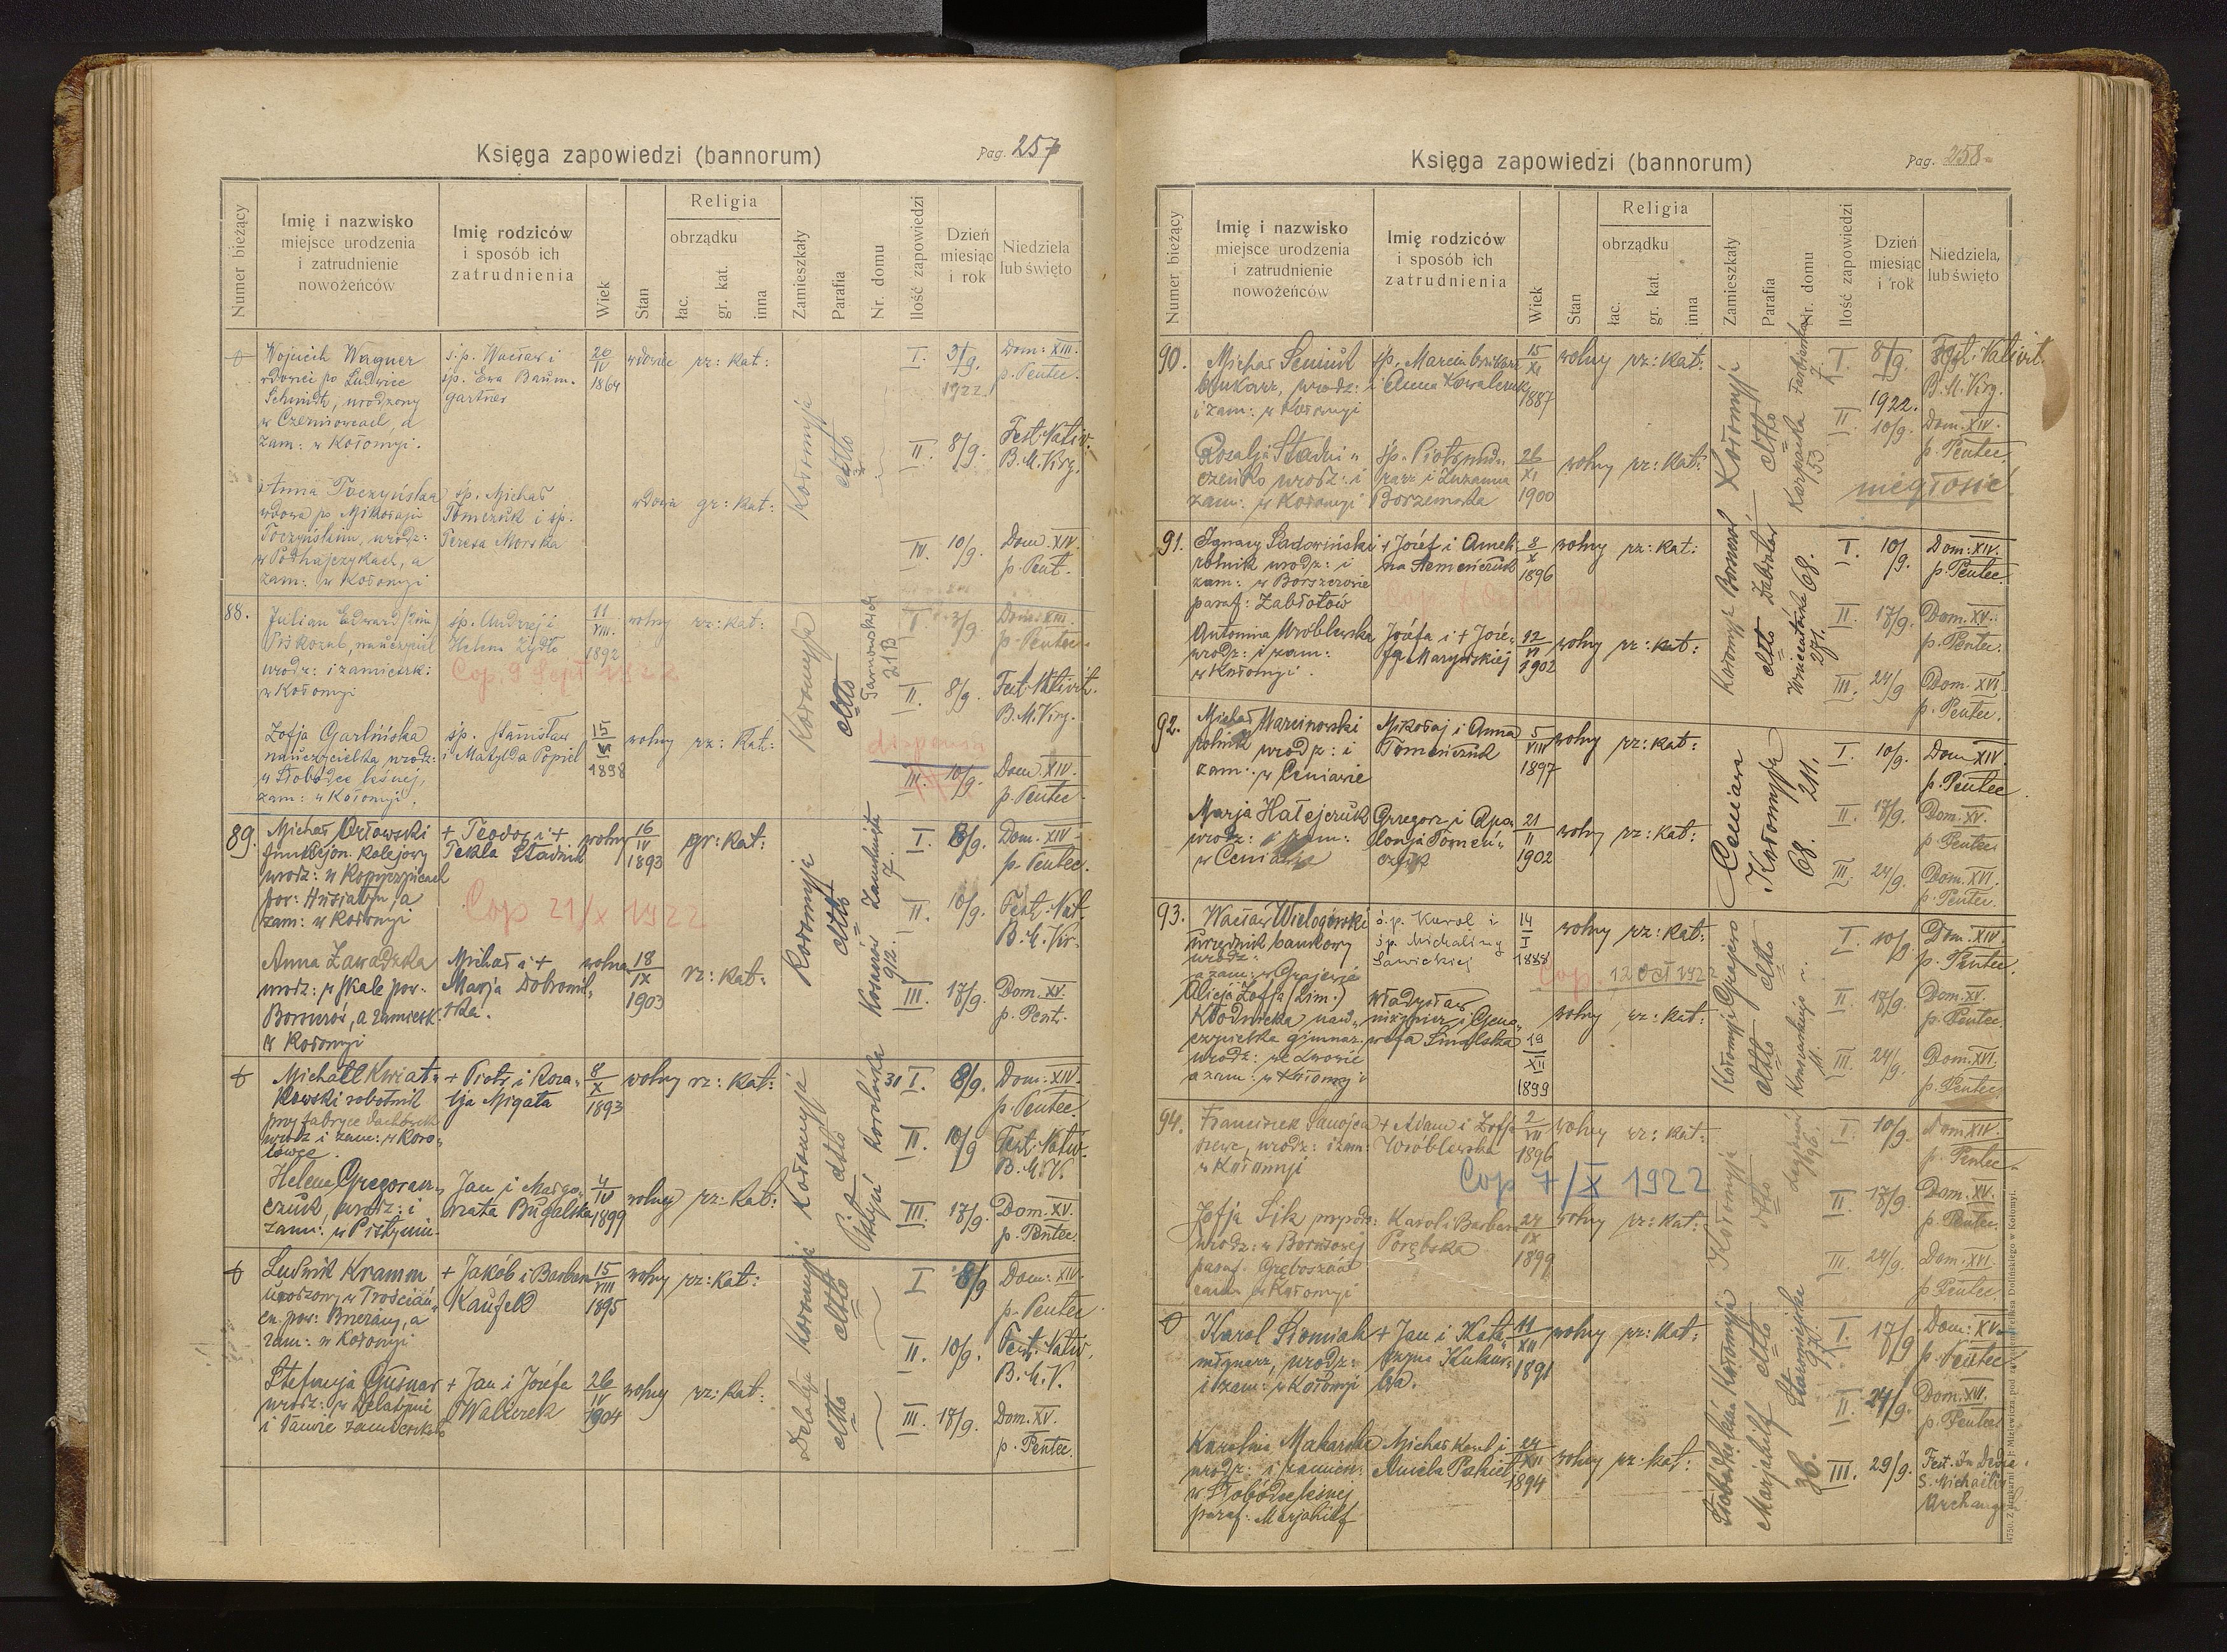 Księga zapowiedzi (bannorum)
Pag. 257
Numer bieżący
Imię i nazwisko
miejsce urodzenia
i zatrudnienie
nowożeńców
Imię rodziców
i sposób ich
zatrudnienia
Wiek
Stan
Religia
obrządku
łac.
gr. kat.
inna
Zamieszkały
Parafia
Nr. domu
Ilość zapowiedzi
Dzień
miesiąc
i rok
Niedziela
lub święto
Wojciech Wagner
wdowiec po Ludwice
Schmidt, urodzony
w Czerniowcach, a
zam: w Kołomyi.
ś.p. Wacław i
śp. Ewa Baum-
gartner
20
IV
1864
wdowiec rz: kat:
Kołomyja
ditto
I. 3/9. 1922. Dom: XIII. p. Pentec.
II. 8/9. Fest. Nativ. B. M. Virg.
Anna Toczyńska
wdowa po Mikołaju
Toczyńskim, urodz:
w Podhajczykach, a
zam: w Kołomyi
śp. Michał
Tomczuk i śp.
Teresa Morska
wdowa gr: kat:
IV. 10/9. Dom. XIV. p. Pent.
88.
Julian Edward (2im)
Piskozub, nauczyciel
urodz: i zamieszk:
w Kołomyi
śp. Andrzej i
Helena Żydło
Cop. 9 Sept 1922
11
VIII.
1892
wolny rz: kat:
Kołomyja
ditto
Tarnowskich
21B
I. 3/9. Dom: XIII. p. Pentec.
II. 8/9. Fest. Nativit. B. M. Virg.
Zofja Garlińska
nauczycielka, urodz:
w Słobódce leśnej,
zam: w Kołomyi.
śp. Stanisław
i Matylda Popiel
15
1898
wolny rz: kat:
dispensa
III. 10/9. Dom. XIV. p. Pentec.
89.
Michał Orłowski
funkcjon. kolejowy
urodz: w Kopyczyńcach
pow: Husiatyn, a
zam: w Kołomyi
+ Teodor i +
Tekla Stadnik
Cop 21/X 1922
wolny
16
IV
1893
gr: kat:
Kołomyja
ditto
I. 8/9. Dom. XIV. p. Pentec.
II. 10/9. Fest. Nat. B. M. Vir.
Anna Zawadzka
urodz: w Skale pow:
Borszczów, a zamieszk.
w Kołomyi
Michał i +
Marja Dobromil-
ska.
wolna
18
IX
1903
rz: kat:
III. 17/9. Dom. XV. p. Pent.
Michał Kwiat-
kowski robotnik
przy fabryce dachówek
urodz i zam: w Koro-
lówce.
+ Piotr i Roza-
lja Migata
8
X
1893
wolny rz: kat:
Kołomyja
ditto
Korolówka
30
I. 8/9. Dom. XIV. p. Pentec.
II. 10/9 Fest. Nativ. B. M. V.
Helena Gregoran-
czuk, urodz: i
zam: w Pistyniu.
Jan i Małgo-
rzata Bugalska
4
IV
1899
wolny rz: kat:
Pistyń
III. 17/9. Dom. XV. p. Pentec.
Ludwik Kramm
urodzony w Trościań-
cu pow: Brzeżany, a
zam: w Kołomyi
+ Jakób i Barbara
Kaufeld
15
VIII
1895
wolny rz: kat:
Kołomyja
ditto
I 8/9 Dom: XIV. p. Pentec.
II. 10/9. Fest. Nativ. B. M. V.
Stefanja Gusnar
urodz: w Delatynie
i tamże zamieszkała
+ Jan i Józefa
Walczek
26
IV
1904
wolny rz: kat:
ditto
III. 17/9. Dom. XV. p. Pentec.
Księga zapowiedzi (bannorum)
Pag. 258
Numer bieżący
Imię i nazwisko
miejsce urodzenia
i zatrudnienie
nowożeńców
Imię rodziców
i sposób ich
zatrudnienia
Wiek
Stan
Religia
obrządku
łac.
gr. kat.
inna
Zamieszkały
Parafia
Nr. domu
Ilość zapowiedzi
Dzień
miesiąc
i rok
Niedziela,
lub święto
90.
Michał Semiuk
drukarz, urodz:
i zam: w Kołomyi
śp. Marcin
i Anna Kowalczuk
15
XI
1887
wolny rz: kat:
Kołomyja
ditto
Karpacka
53
I. 8/9. 1922. Fest. Nativit. B. M. Virg.
II. 10/9. Dom. XIV. p. Pentec.
Rozalja Stadni-
czeńko urodz: i
zam: w Kołomyi
śp. Piotr
i Zuzanna
Borzemska
26
XI
1900
wolny rz: kat:
niegłosić
91.
Ignacy Sadowiński
rolnik urodz: i
zam: w Borszczowie
paraf: Zabłotów
+ Józef i Anel-
na Semeńczuk
8
X
1896
wolny rz: kat:
I. 10/9. Dom: XIV. p. Pentec.
II. 17/9. Dom. XV. p. Pentec.
Antonina Wróblewska
urodz: i zam:
w Kołomyi.
Józefa i + Józe-
fy Maryńskiej
12
VI
1902
wolny rz: kat:
Kołomyja
ditto
271.
III. 24/9 Dom. XVI p. Pentec.
92.
Michał Marcinowski
rolnik urodz: i
zam: w Ceniawie
Mikołaj i Anna
Tomeńczuk
5
VIII
1897
wolny rz: kat:
Ceniawa
Kołomyja
68. 211.
I. 10/9. Dom XIV. p. Pentec.
II. 17/9. Dom. XV. p. Pentec.
Marja Hałejczuk
urodz: i zam:
w Ceniawie
Grzegorz i Apo-
lonja Tomeń-
czuk
21
II
1902
wolny rz: kat:
III. 24/9. Dom. XVI. p. Pentec.
93.
Wacław Wielogórski
urzędnik bankowy
urodz:
a zam: w Grajewie
ś.p. Karol i
śp. Michaliny
Sawickiej
14
I
1888
wolny rz: kat:
Cop. 12 Oct 1922
I. 10/9. Dom. XIV. p. Pentec.
Alicja Zofja (2im.)
Kłodnicka nau-
czycielka gimnaz.
urodz: we Lwowie
a zam: w Kołomyi
Władysław
inżynier i Geno-
wefa Smolska
19
XII
1899
wolny rz: kat:
Kołomyja Grajewo
ditto ditto
Kraszewskiego
11.
II. 17/9. Dom. XV. p. Pentec.
III. 24/9. Dom. XVI. p. Pentec.
94.
Franciszek Sanojca
szewc, urodz: i zam:
w Kołomyi
+ Adam i Zofja
Wróblewska
2
VII
1896
wolny rz: kat:
Cop 7/X 1922
Kołomyja
ditto
I. 10/9. Dom XIV. p. Pentec.
II. 17/9. Dom. XV. p. Pentec.
Zofja Sik
urodz: w Borusowej
paraf. Gręboszów
zam: w Kołomyi
Karol i Barbara
Porębska
24
IX
1899
wolny rz: kat:
III. 24/9. Dom. XVI. p. Pentec.
Karol Słomiak
młynarz, urodz:
i zam: w Kołomyi
+ Jan i Kata-
rzyna Kukur-
ba.
11
XII
1891
wolny rz: kat:
Kołomyja
ditto
Staromiejska
97.
I. 17/9 Dom: XV. p. Pentec.
II. 24/9. Dom. XVI. p. Pentec.
Karolina Makarska
urodz: i zamiesz:
w Słobódce leśnej
paraf: Marjahilf
Michał Karol i
Aniela Pakiet
24
XII
1894
wolny rz: kat:
Marjahilf
36.
III. 29/9. Fest. In Dedic. S. Michaelis Archang.